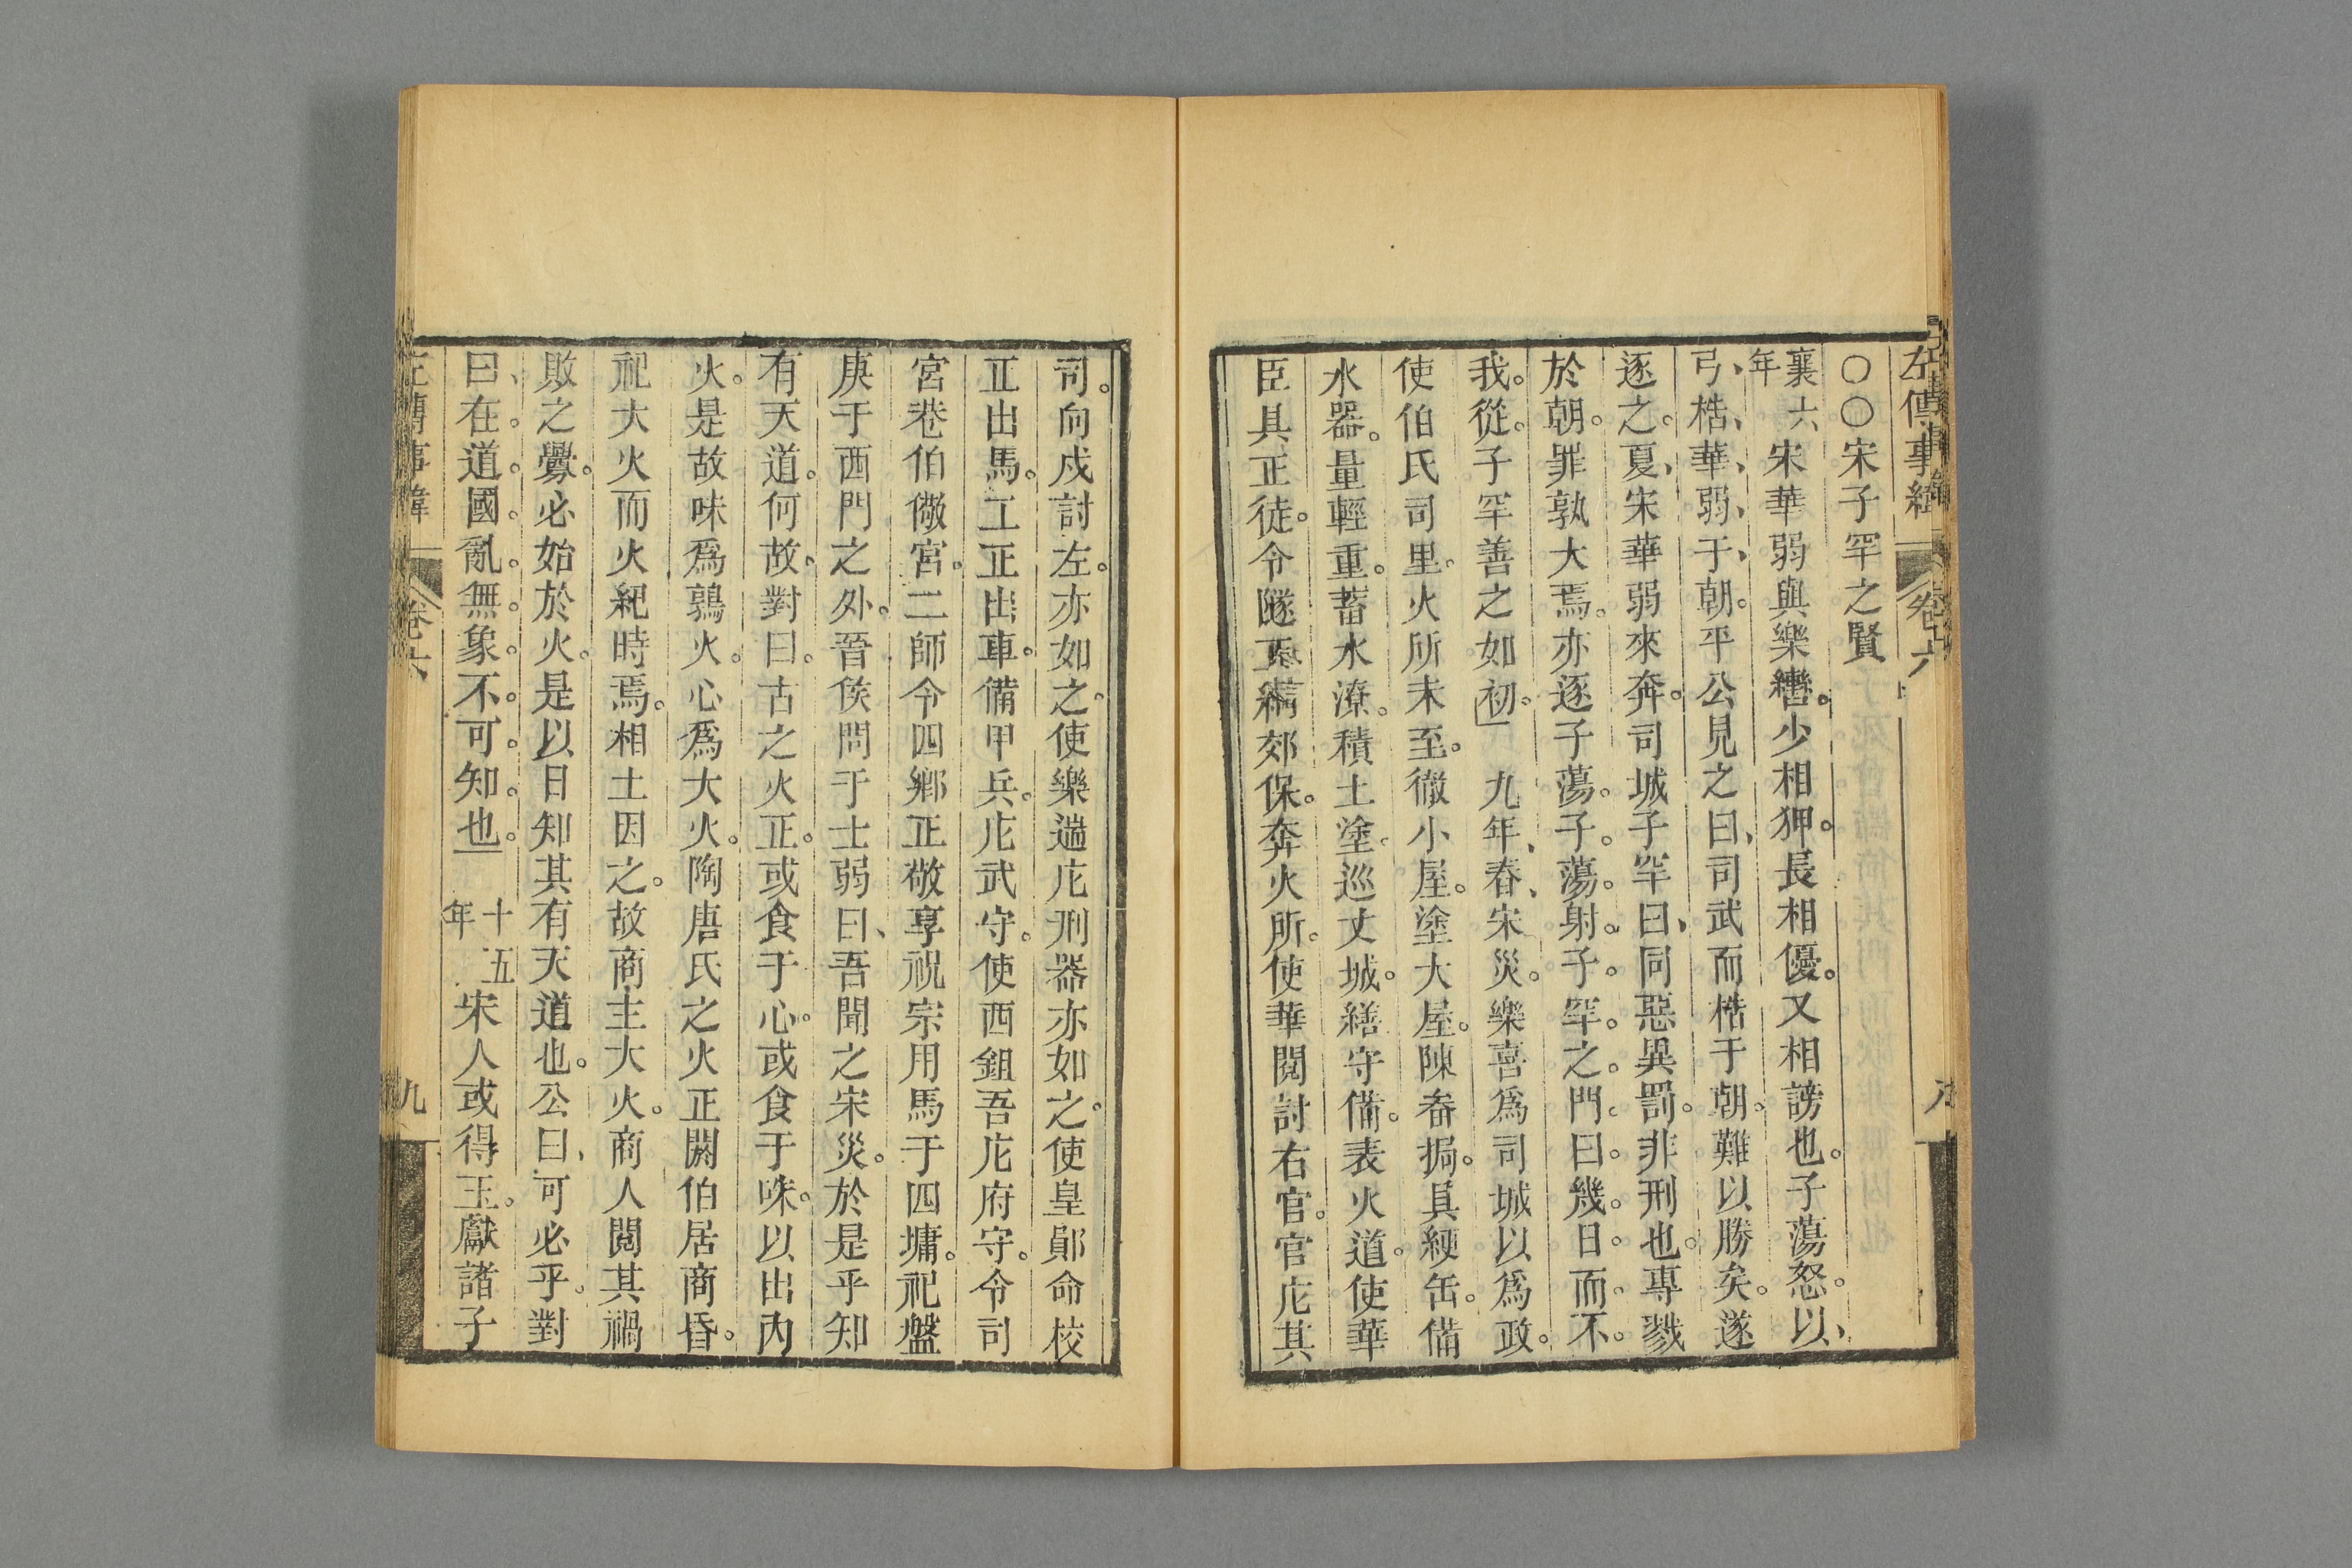 左傳事緯
卷六
○○宋子罕之賢
襄六年宋華弱與樂轡。少相狎。長相優。又相謗也。子蕩怒。以、
弓、梏、華、弱、于、朝。平公見之曰、司武而梏于朝。難以勝矣。遂
逐之。夏、宋華弱來奔。司城子罕曰、同惡異罰。非刑也。專戮
於朝。罪孰大焉。亦逐子蕩。子。蕩。射。子。罕。之。門。曰。幾。日。而。不。
我。從。子罕善之如初。九年、春、宋災。樂喜爲司城以爲政。
使伯氏司里。火所未至。徹小屋。塗大屋。陳畚挶。具綆缶。備
水器。量輕重。蓄水潦。積土塗。巡丈城。繕守備。表火道。使華
臣具正徒。令隧正納郊保。奔火所。使華閱討右官。官庀其
司。向戍討左。亦如之。使樂遄庀刑器亦如之。使皇鄖命校
正出馬。工正出車。備甲兵。庀武守。使西鉏吾庀府守。令司
宮巷伯儆宮。二師令四鄉正敬享祝宗用馬于四墉。祀盤
庚于西門之外。晉侯問于士弱曰、吾聞之宋災。於是乎知
有天道。何故。對曰。古之火正。或食于心。或食于咮。以出內
火。是故咮爲鶉火。心爲大火。陶唐氏之火正閼伯居商丘。
祀大火而火紀時焉。相土因之。故商主大火。商人閱其禍
敗之釁。必始於火。是以日知其有天道也。公曰、可必乎。對
曰、在。道。國。亂。無。象。不。可。知。也。十五年宋人或得玉。獻諸子
左傳事緯
卷六
九